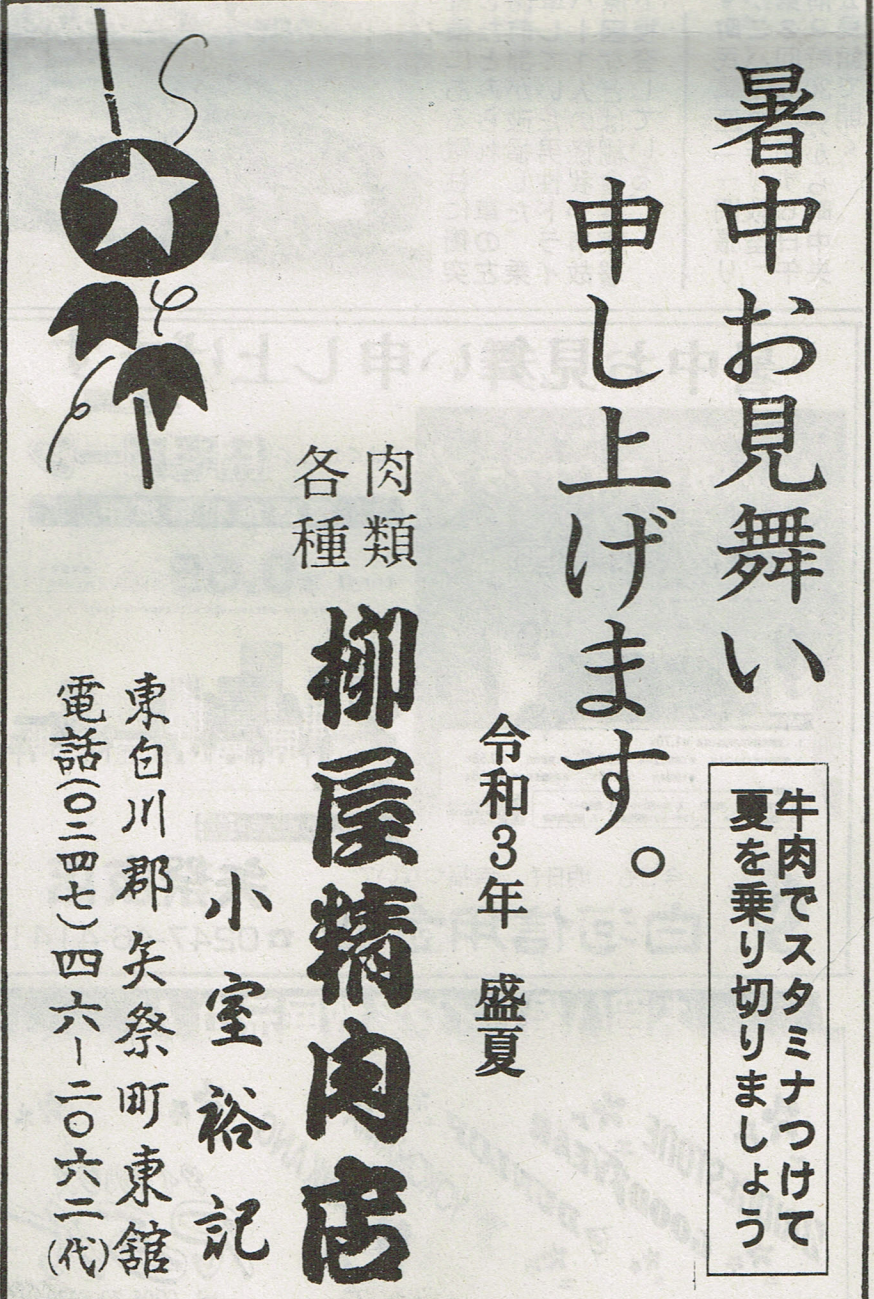 暑中お見舞い
申し上げます。
牛肉でスタミナつけて
夏を乗り切りましょう
令和3年　盛夏
肉類
各種
柳屋精肉店
小室裕記
東白川郡矢祭町東舘
電話(〇二四七)四六ー二〇六二(代)